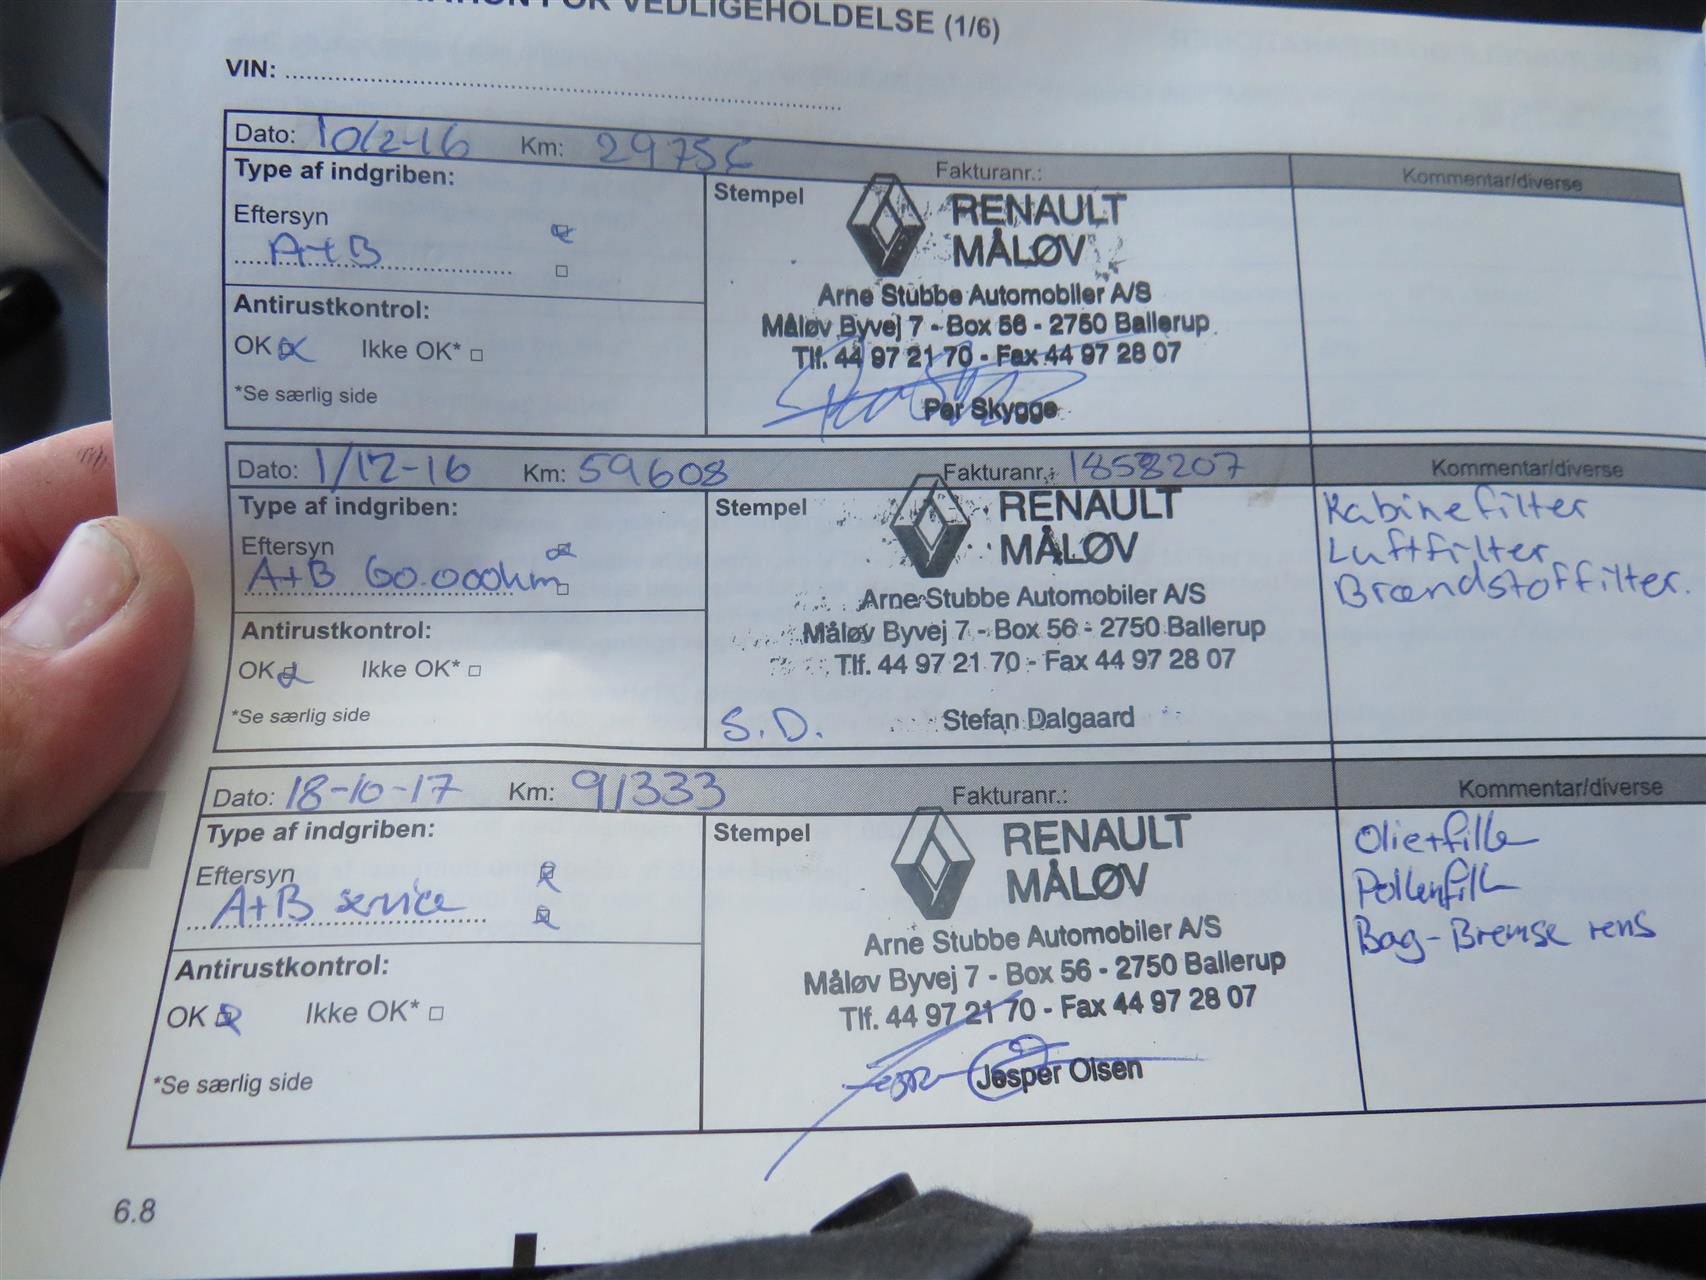 VEDLIGEHOLDELSE (1/6)
VIN:
Dato: 10/2-16 Km: 29756 Fakturanr.: Kommentar/diverse
Type af indgriben:
Stempel
RENAULT
MÅLØV
Eftersyn
A+B
Arne Stubbe Automobiler A/S
Måløv Byvej 7 - Box 56 - 2750 Ballerup
Tlf. 44 97 21 70 - Fax 44 97 28 07
Per Skygge
Antirustkontrol:
OK Ikke OK*
*Se særlig side
Dato: 1/12-16 Km: 59608 Fakturanr.: 1858207 Kommentar/diverse
Type af indgriben:
Stempel
RENAULT
MÅLØV
Eftersyn
A+B 60.000km
Arne Stubbe Automobiler A/S
Måløv Byvej 7 - Box 56 - 2750 Ballerup
Tlf. 44 97 21 70 - Fax 44 97 28 07
S.D. Stefan Dalgaard
Kabinefilter
Luftfilter
Brændstoffilter.
Antirustkontrol:
OK Ikke OK*
*Se særlig side
Dato: 18-10-17 Km: 91333 Fakturanr.: Kommentar/diverse
Type af indgriben:
Stempel
RENAULT
MÅLØV
Eftersyn
A+B service
Arne Stubbe Automobiler A/S
Måløv Byvej 7 - Box 56 - 2750 Ballerup
Tlf. 44 97 21 70 - Fax 44 97 28 07
Jesper Olsen
Olie+filter
Pollenfilt
Bag-Bremse rens
Antirustkontrol:
OK Ikke OK*
*Se særlig side
6.8